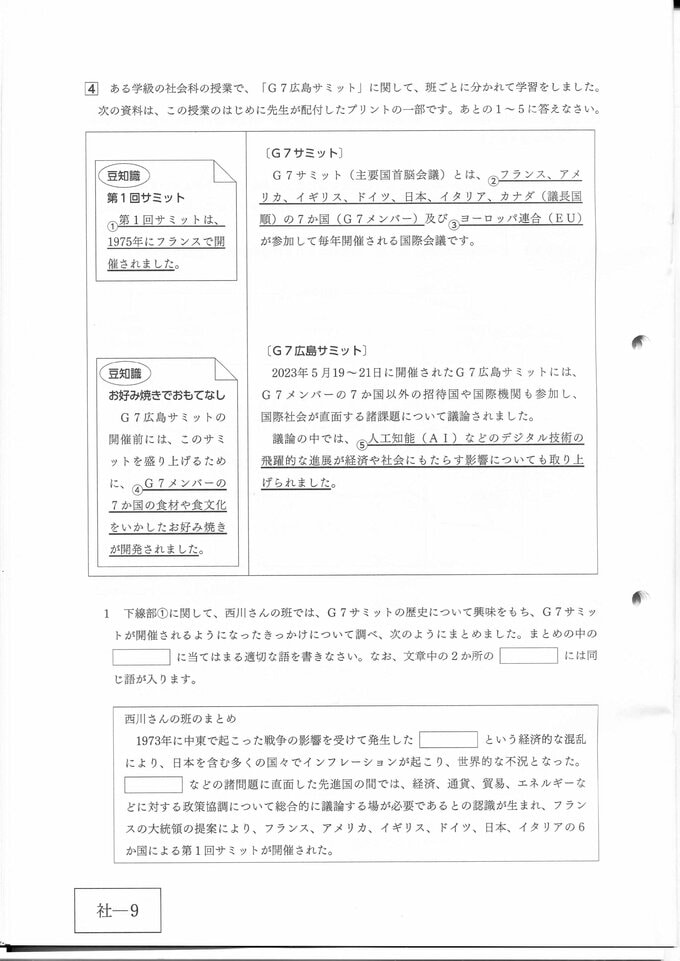 4 ある学級の社会科の授業で、「G7広島サミット」に関して、班ごとに分かれて学習をしました。
次の資料は、この授業のはじめに先生が配付したプリントの一部です。あとの1～5に答えなさい。
豆知識
第1回サミット
①第1回サミットは、
1975年にフランスで開
催されました。
〔G7サミット〕
G7サミット（主要国首脳会議）とは、②フランス、アメ
リカ、イギリス、ドイツ、日本、イタリア、カナダ（議長国
順）の7か国（G7メンバー）及び③ヨーロッパ連合（EU）
が参加して毎年開催される国際会議です。
豆知識
お好み焼きでおもてなし
G7広島サミットの
開催前には、このサミ
ットを盛り上げるため
に、④G7メンバーの
7か国の食材や食文化
をいかしたお好み焼き
が開発されました。
〔G7広島サミット〕
2023年5月19～21日に開催されたG7広島サミットには、
G7メンバーの7か国以外の招待国や国際機関も参加し、
国際社会が直面する諸課題について議論されました。
議論の中では、⑤人工知能（AI）などのデジタル技術の
飛躍的な進展が経済や社会にもたらす影響についても取り上
げられました。
1 下線部①に関して、西川さんの班では、G7サミットの歴史について興味をもち、G7サミッ
トが開催されるようになったきっかけについて調べ、次のようにまとめました。まとめの中の
に当てはまる適切な語を書きなさい。なお、文章中の2か所の には同
じ語が入ります。
西川さんの班のまとめ
1973年に中東で起こった戦争の影響を受けて発生した という経済的な混乱
により、日本を含む多くの国々でインフレーションが起こり、世界的な不況となった。
などの諸問題に直面した先進国の間では、経済、通貨、貿易、エネルギーな
どに対する政策協調について総合的に議論する場が必要であるとの認識が生まれ、フラン
スの大統領の提案により、フランス、アメリカ、イギリス、ドイツ、日本、イタリアの6
か国による第1回サミットが開催された。
社―9